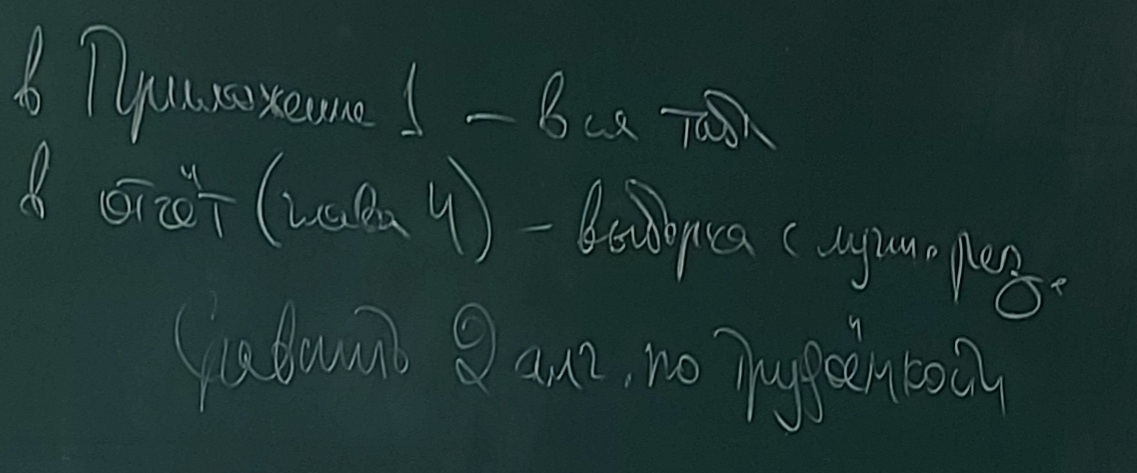 в Приложение 1 – вся табл
в отчёт (глава 4) – выборка с лучш. рез.
Сравнить 2 алг. по трудоёмкости